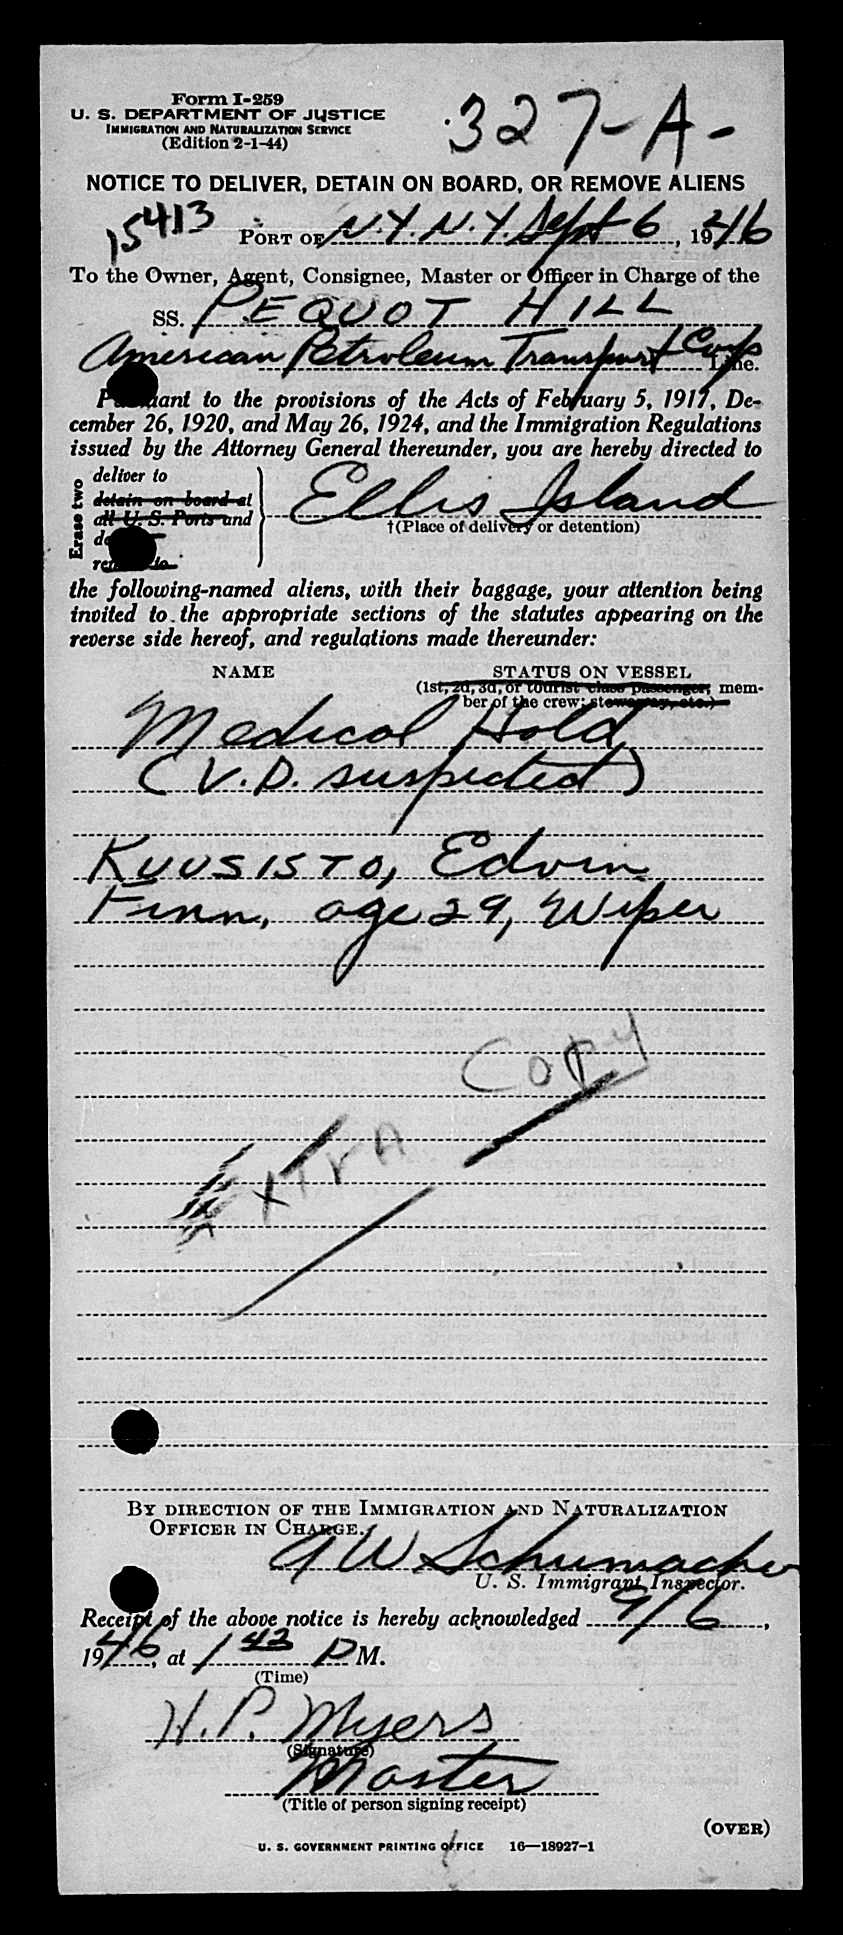 Form I-259
U. S. DEPARTMENT OF JUSTICE
IMMIGRATION AND NATURALIZATION SERVICE
(Edition 2-1-44)
327-A-
NOTICE TO DELIVER, DETAIN ON BOARD, OR REMOVE ALIENS
15413
PORT OF N.Y. N.Y. Sept 6, 1946
To the Owner, Agent, Consignee, Master or Officer in Charge of the
SS. PEQUOT HILL
American Petroleum Transport Corp Line.
Pursuant to the provisions of the Acts of February 5, 1917, De-
cember 26, 1920, and May 26, 1924, and the Immigration Regulations
issued by the Attorney General thereunder, you are hereby directed to
Erase two
deliver to
detain on board at
all U. S. Ports and
Ellis Island
†(Place of delivery or detention)
the following-named aliens, with their baggage, your attention being
invited to the appropriate sections of the statutes appearing on the
reverse side hereof, and regulations made thereunder:
NAME STATUS ON VESSEL
(1st, 2d, 3d, or tourist class passenger; mem-
ber of the crew; stowaway, etc.)
Medical Hold
(V.D. suspected)
KUUSISTO, Edvin
Finn, age 29, Wiper
EXTRA COPY
BY DIRECTION OF THE IMMIGRATION AND NATURALIZATION
OFFICER IN CHARGE.
Schumacher
U. S. Immigrant Inspector.
Receipt of the above notice is hereby acknowledged 9/6,
1946, at 1 42 P M.
(Time)
H. P. Myers
(Signature)
Master
(Title of person signing receipt)
(OVER)
U. S. GOVERNMENT PRINTING OFFICE 16—18927-1